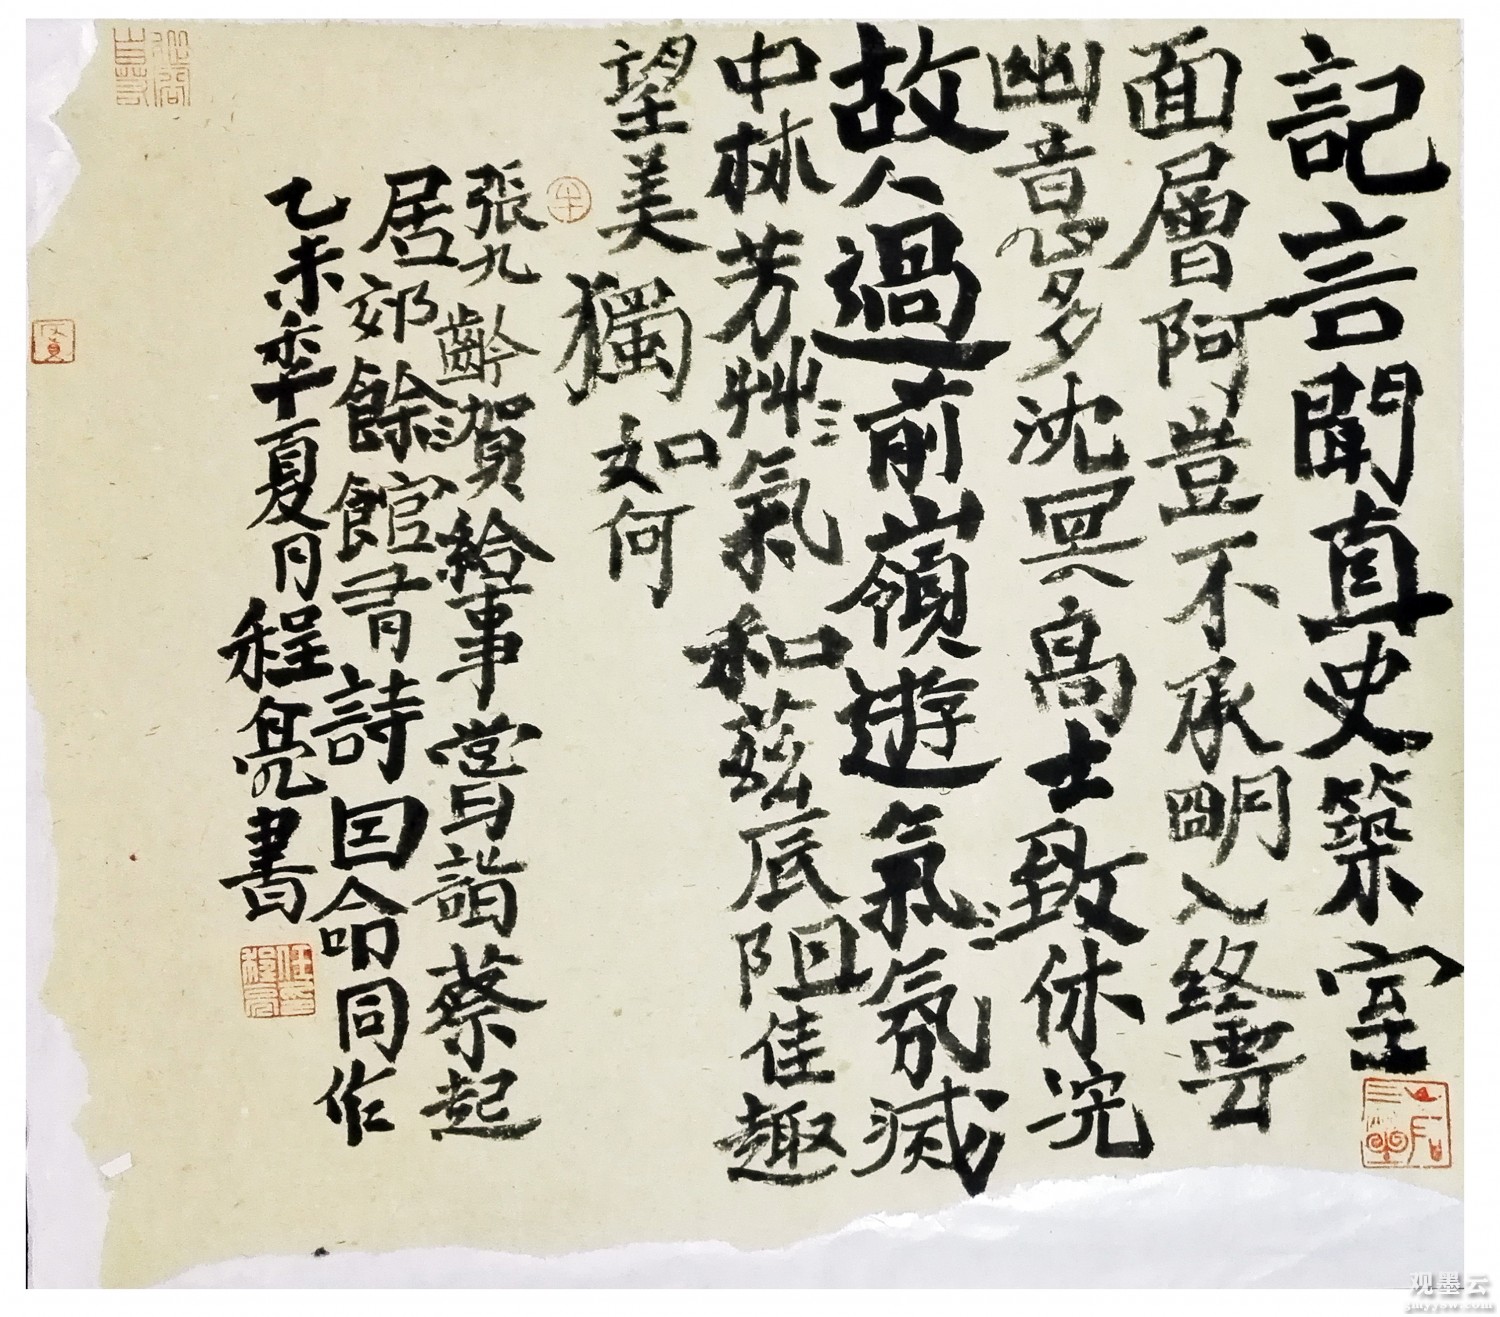 記言聞直史築室
面層阿豈不承明入終雲
幽意多沈冥高士致休浣
故人過前嶺遊氣氛滅
中林芳艸氣和茲辰阻佳趣
望美獨如何
張九齡賀給事嘗詣蔡起
居郊餘館有詩因命同作
乙未年夏月程亮書
观墨云